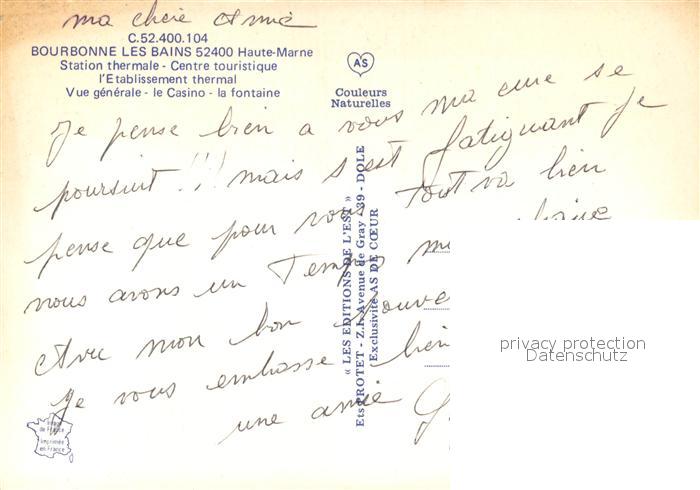 ma chère amie
C.52.400.104
BOURBONNE LES BAINS 52400 Haute-Marne
Station thermale - Centre touristique
l'Etablissement thermal
Vue générale - le Casino - la fontaine
AS
Couleurs
Naturelles
Je pense bien a vous ma cure se
poursuit !!! mais s'est fatiguant je
pense que pour vous tout va bien
nous avons un Temps
Avec mon bon
Je vous embrasse bien
une amie G
« LES EDITIONS DE L'EST »
Ets PROTET - Z.I. Avenue de Gray - 39 - DOLE
Exclusivité AS DE CŒUR
Image
de France
Imprimée
en France
privacy protection
Datenschutz